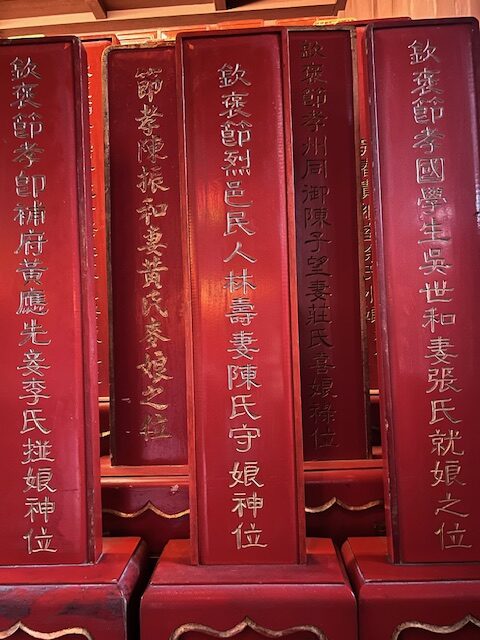 欽褒節孝國學生吳世和妻張氏就娘之位
欽褒節孝州同御陳子望妻莊氏喜娘祿位
欽褒節烈邑民人林壽妻陳氏守娘神位
節孝陳振和妻黃氏麥娘之位
欽褒節孝即補府黃應先妾李氏娘神位